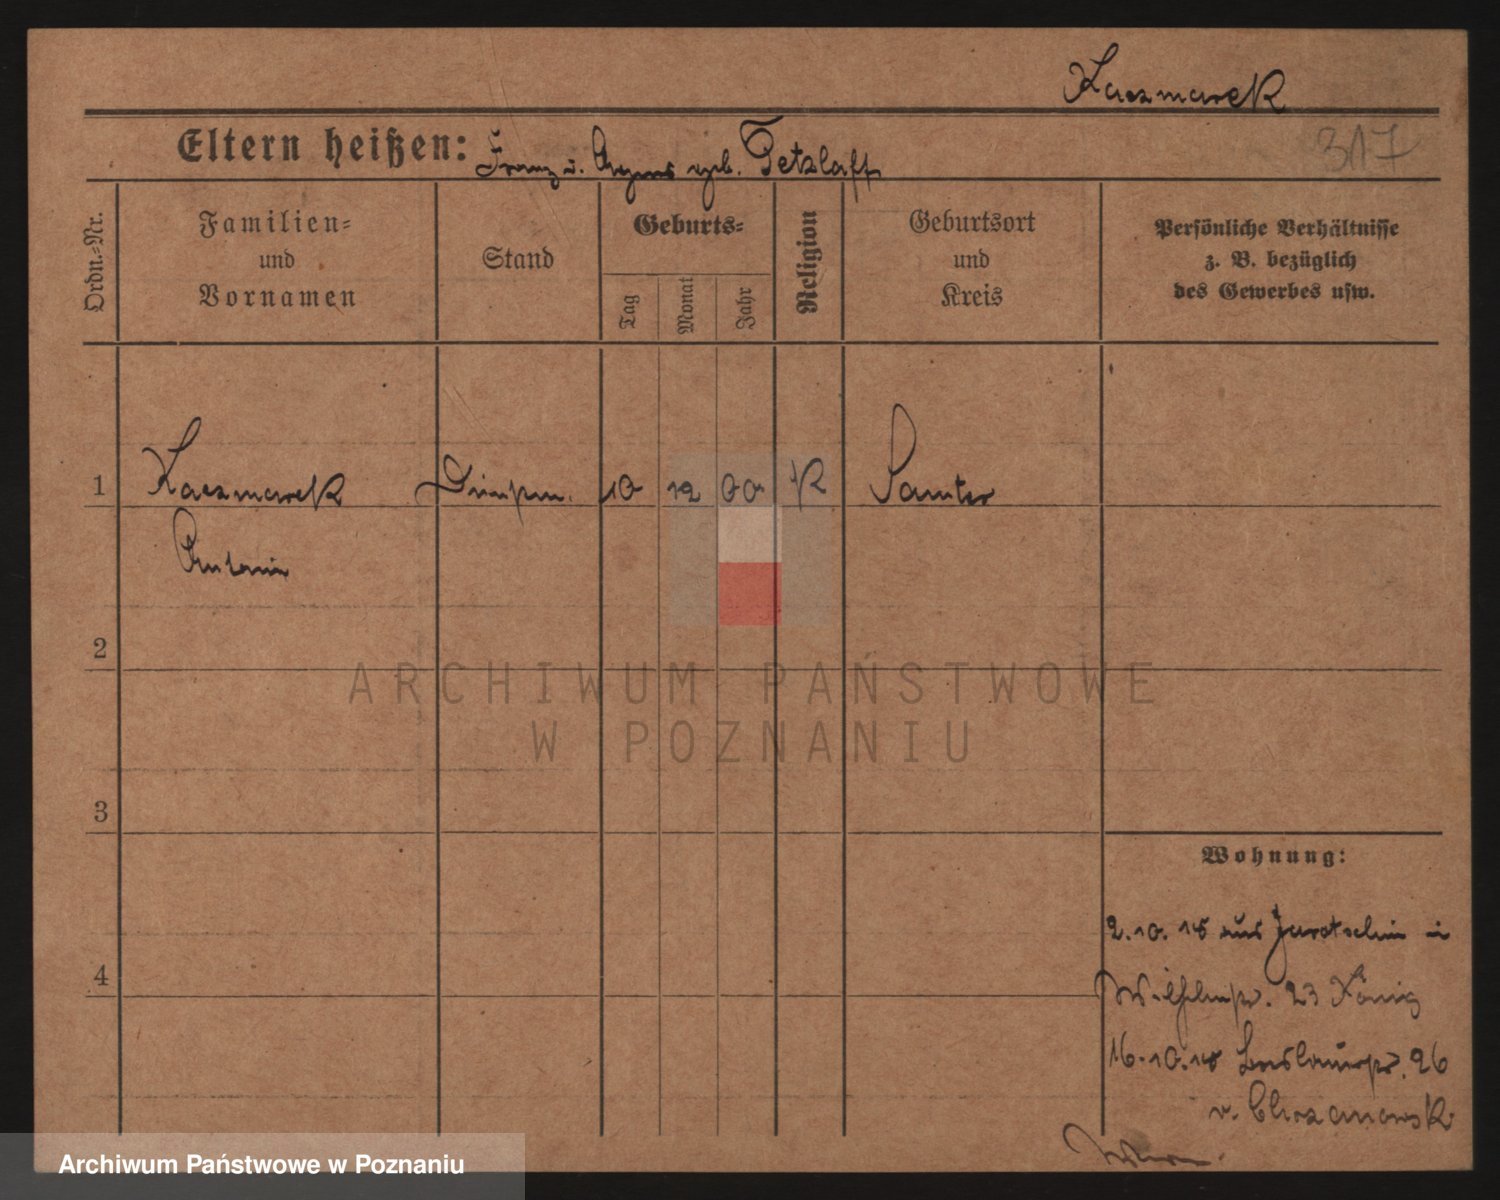 Kaczmarek
Eltern heißen: Franz u. Agnes geb. Tetzlaff
317
Ordn.-Nr.
Familien-
und
Vornamen
Stand
Geburts-
Tag
Monat
Jahr
Religion
Geburtsort
und
Kreis
Persönliche Verhältnisse
z. B. bezüglich
des Gewerbes usw.
1 Kaczmarek 10 12 00 K Samter
2
ARCHIWUM PAŃSTWOWE
W POZNANIU
3
Wohnung:
2.10.18 aus Jarotschin
4
Wilhelmstr. 23 König
16.10.18 Breslauerstr. 26
v. Chrzanowski
Archiwum Państwowe w Poznaniu